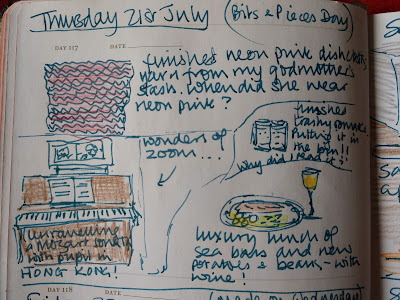 Thursday 21st July (Bits & Pieces Day)
DAY 117 DATE
finished neon pink dishcloth,
yarn from my godmother's
stash. when did she wear
neon pink?
finished
trashy
putting it in
the bin!!
why did I read it?
wonders of
zoom...
unravelling
a Mozart sonata
with pupil in
HONG KONG!
luxury lunch of
sea bass and new
potatoes & beans - with
wine!
DAY 118 DATE